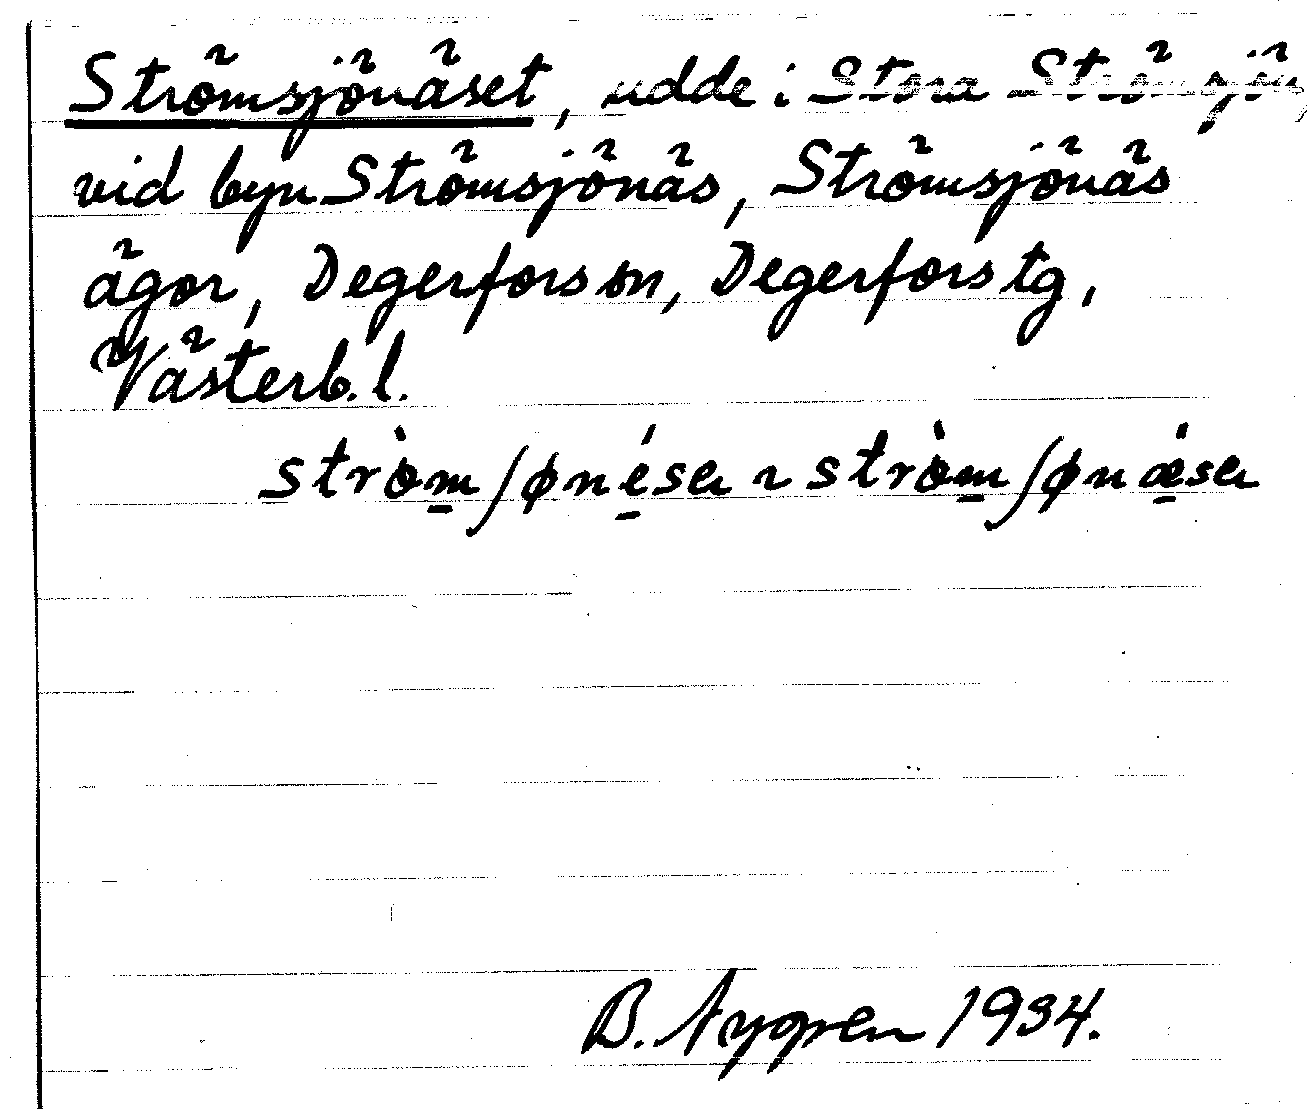 Strömsjönäset, udde i Stora Strömsjön,
vid byn Strömsjönäs, Strömsjönäs
ägor, Degerfors sn, Degerfors tg,
Västerb. l.
stròm̲ʃøné̲sə ~ stròm̲ʃønǽ̲sə
B. 1934.